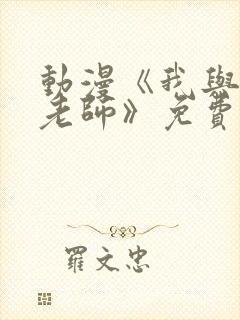 動漫《我與
老師》免費
羅文忠